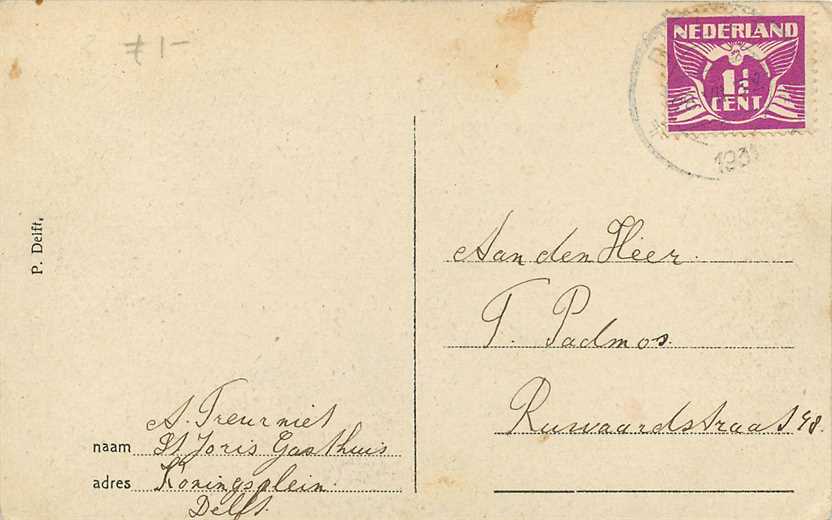 ƒ 1-
NEDERLAND
1½
CENT
1931
P. Delft.
Aan den Heer
T. Padmos.
Ruwaardstraat 48.
A. Treurniet
naam St Joris Gasthuis
adres Koningsplein
Delft.